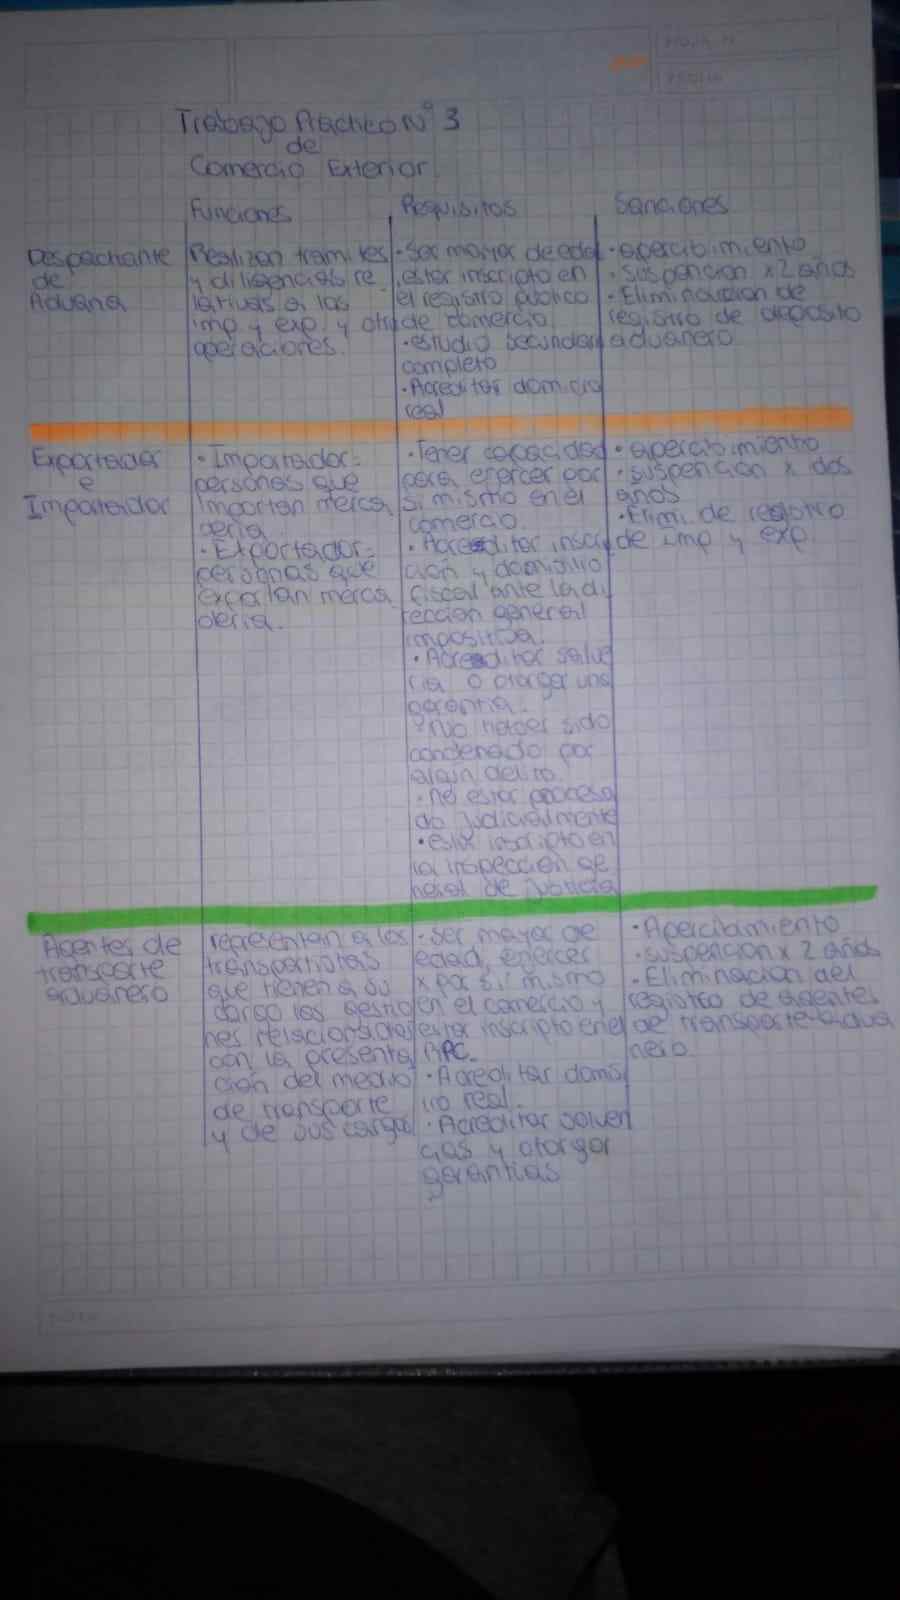 HOJA Nº
FECHA
Trabajo Practico Nº 3
de
Comercio Exterior
Funciones
Requisitos
Sanciones
Despachante
de
Aduana
Realizan tramites
y diligencias re
lativas a las
imp y exp. y otra
operaciones.
• Ser mayor de edad
estar inscripto en
el registro publico
de comercio
• estudio secundari
completo
• Acreditar domicio
real
• apercibimiento
• suspencion x 2 años
• Eliminacion de
registro de deposito
aduanero
Exportador
e
Importador
• Importador:
personas que
importan merca
deria
• Exportador:
personas que
exportan merca
deria.
• Tener capacidad
para ejercer por
si mismo en el
comercio.
• Acreditar inscrip
cion y domicilio
fiscal ante la di
reccion general
impositiva.
• Acreditar solve
cia o otorgar una
garantia.
• No haber sido
condenado por
algun delito.
• no estar procesa
do judicialmente
• estar inscripto en
la inspeccion ge
neral de justicia
• apercibimiento
• suspencion x dos
años
• Elimi. de registro
de imp y exp
Agentes de
transporte
aduanero
representan a los
transportistas
que tienen a su
cargo las gestio
nes relacionadas
con la presenta
cion del medio
de transporte
y de sus cargas
• Ser mayor de
edad, ejercer
x por si mismo
en el comercio y
estar inscripto en el
RPC.
• Acreditar domi
lio real.
• Acreditar solven
cias y otorgar
garantias
• Apercibimiento
• suspencion x 2 años
• Eliminacion del
registro de agentes
de transporte adua
nero.
NOTA